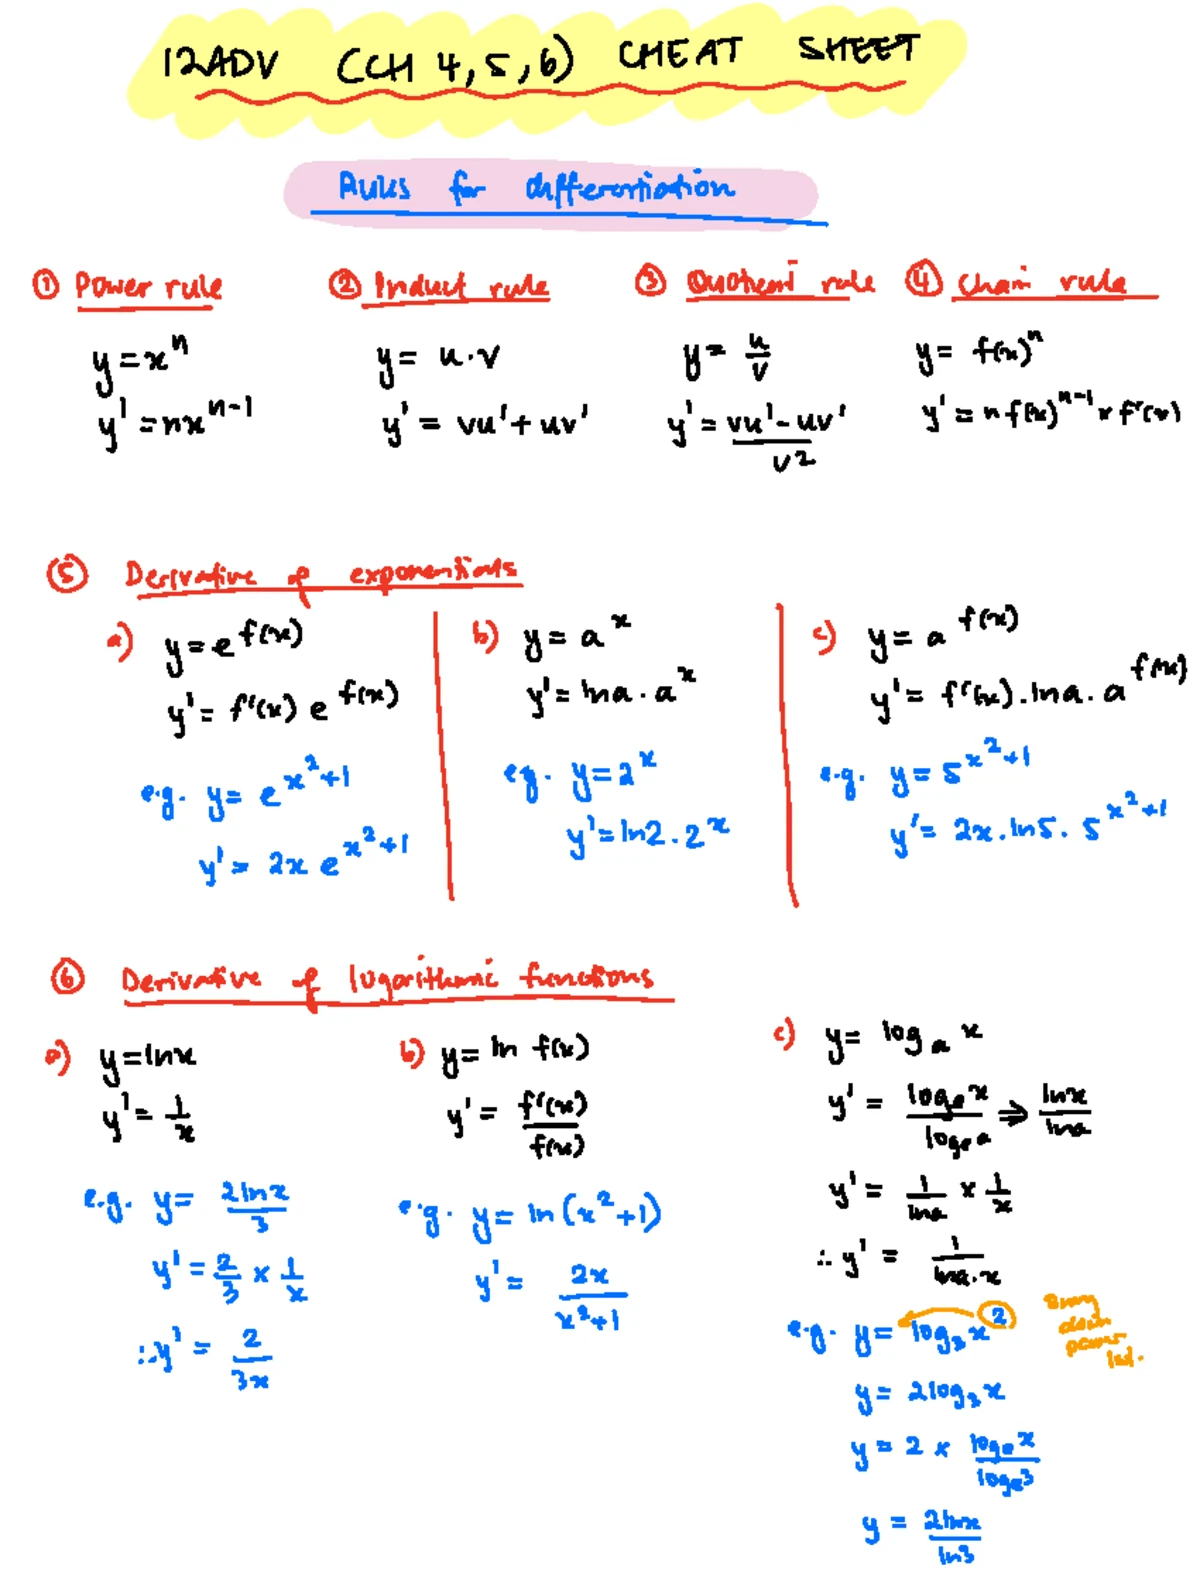 12ADV (CH 4,5,6) CHEAT SHEET
Rules for differentiation
① Power rule
y = xⁿ
y' = nxⁿ⁻¹
② Product rule
y = u·v
y' = vu' + uv'
③ Quotient rule
y = u/v
y' = (vu' - uv')/v²
④ Chain rule
y = f(x)ⁿ
y' = n f(x)ⁿ⁻¹ × f'(x)
⑤ Derivative of exponentials
a) y = e^f(x)
y' = f'(x) e^f(x)
e.g. y = e^(x²+1)
y' = 2x e^(x²+1)
b) y = a^x
y' = lna · a^x
eg. y = 2^x
y' = ln2 · 2^x
c) y = a^f(x)
y' = f'(x) . lna . a^f(x)
e.g. y = 5^(x²+1)
y' = 2x . ln5 . 5^(x²+1)
⑥ Derivative of logarithmic functions
a) y = lnx
y' = 1/x
e.g. y = 2lnx/3
y' = 2/3 × 1/x
∴ y' = 2/3x
b) y = ln f(x)
y' = f'(x)/f(x)
e.g. y = ln(x²+1)
y' = 2x/x²+1
c) y = logₐ x
y' = logₑ x/logₑ a ⇒ lnx/lna
y' = 1/lna × 1/x
∴ y' = 1/lna.x
e.g. y = log₃ x²
Bring
down
power
1st.
y = 2log₃ x
y = 2 × logₑ x/logₑ 3
y = 2lnx/ln3